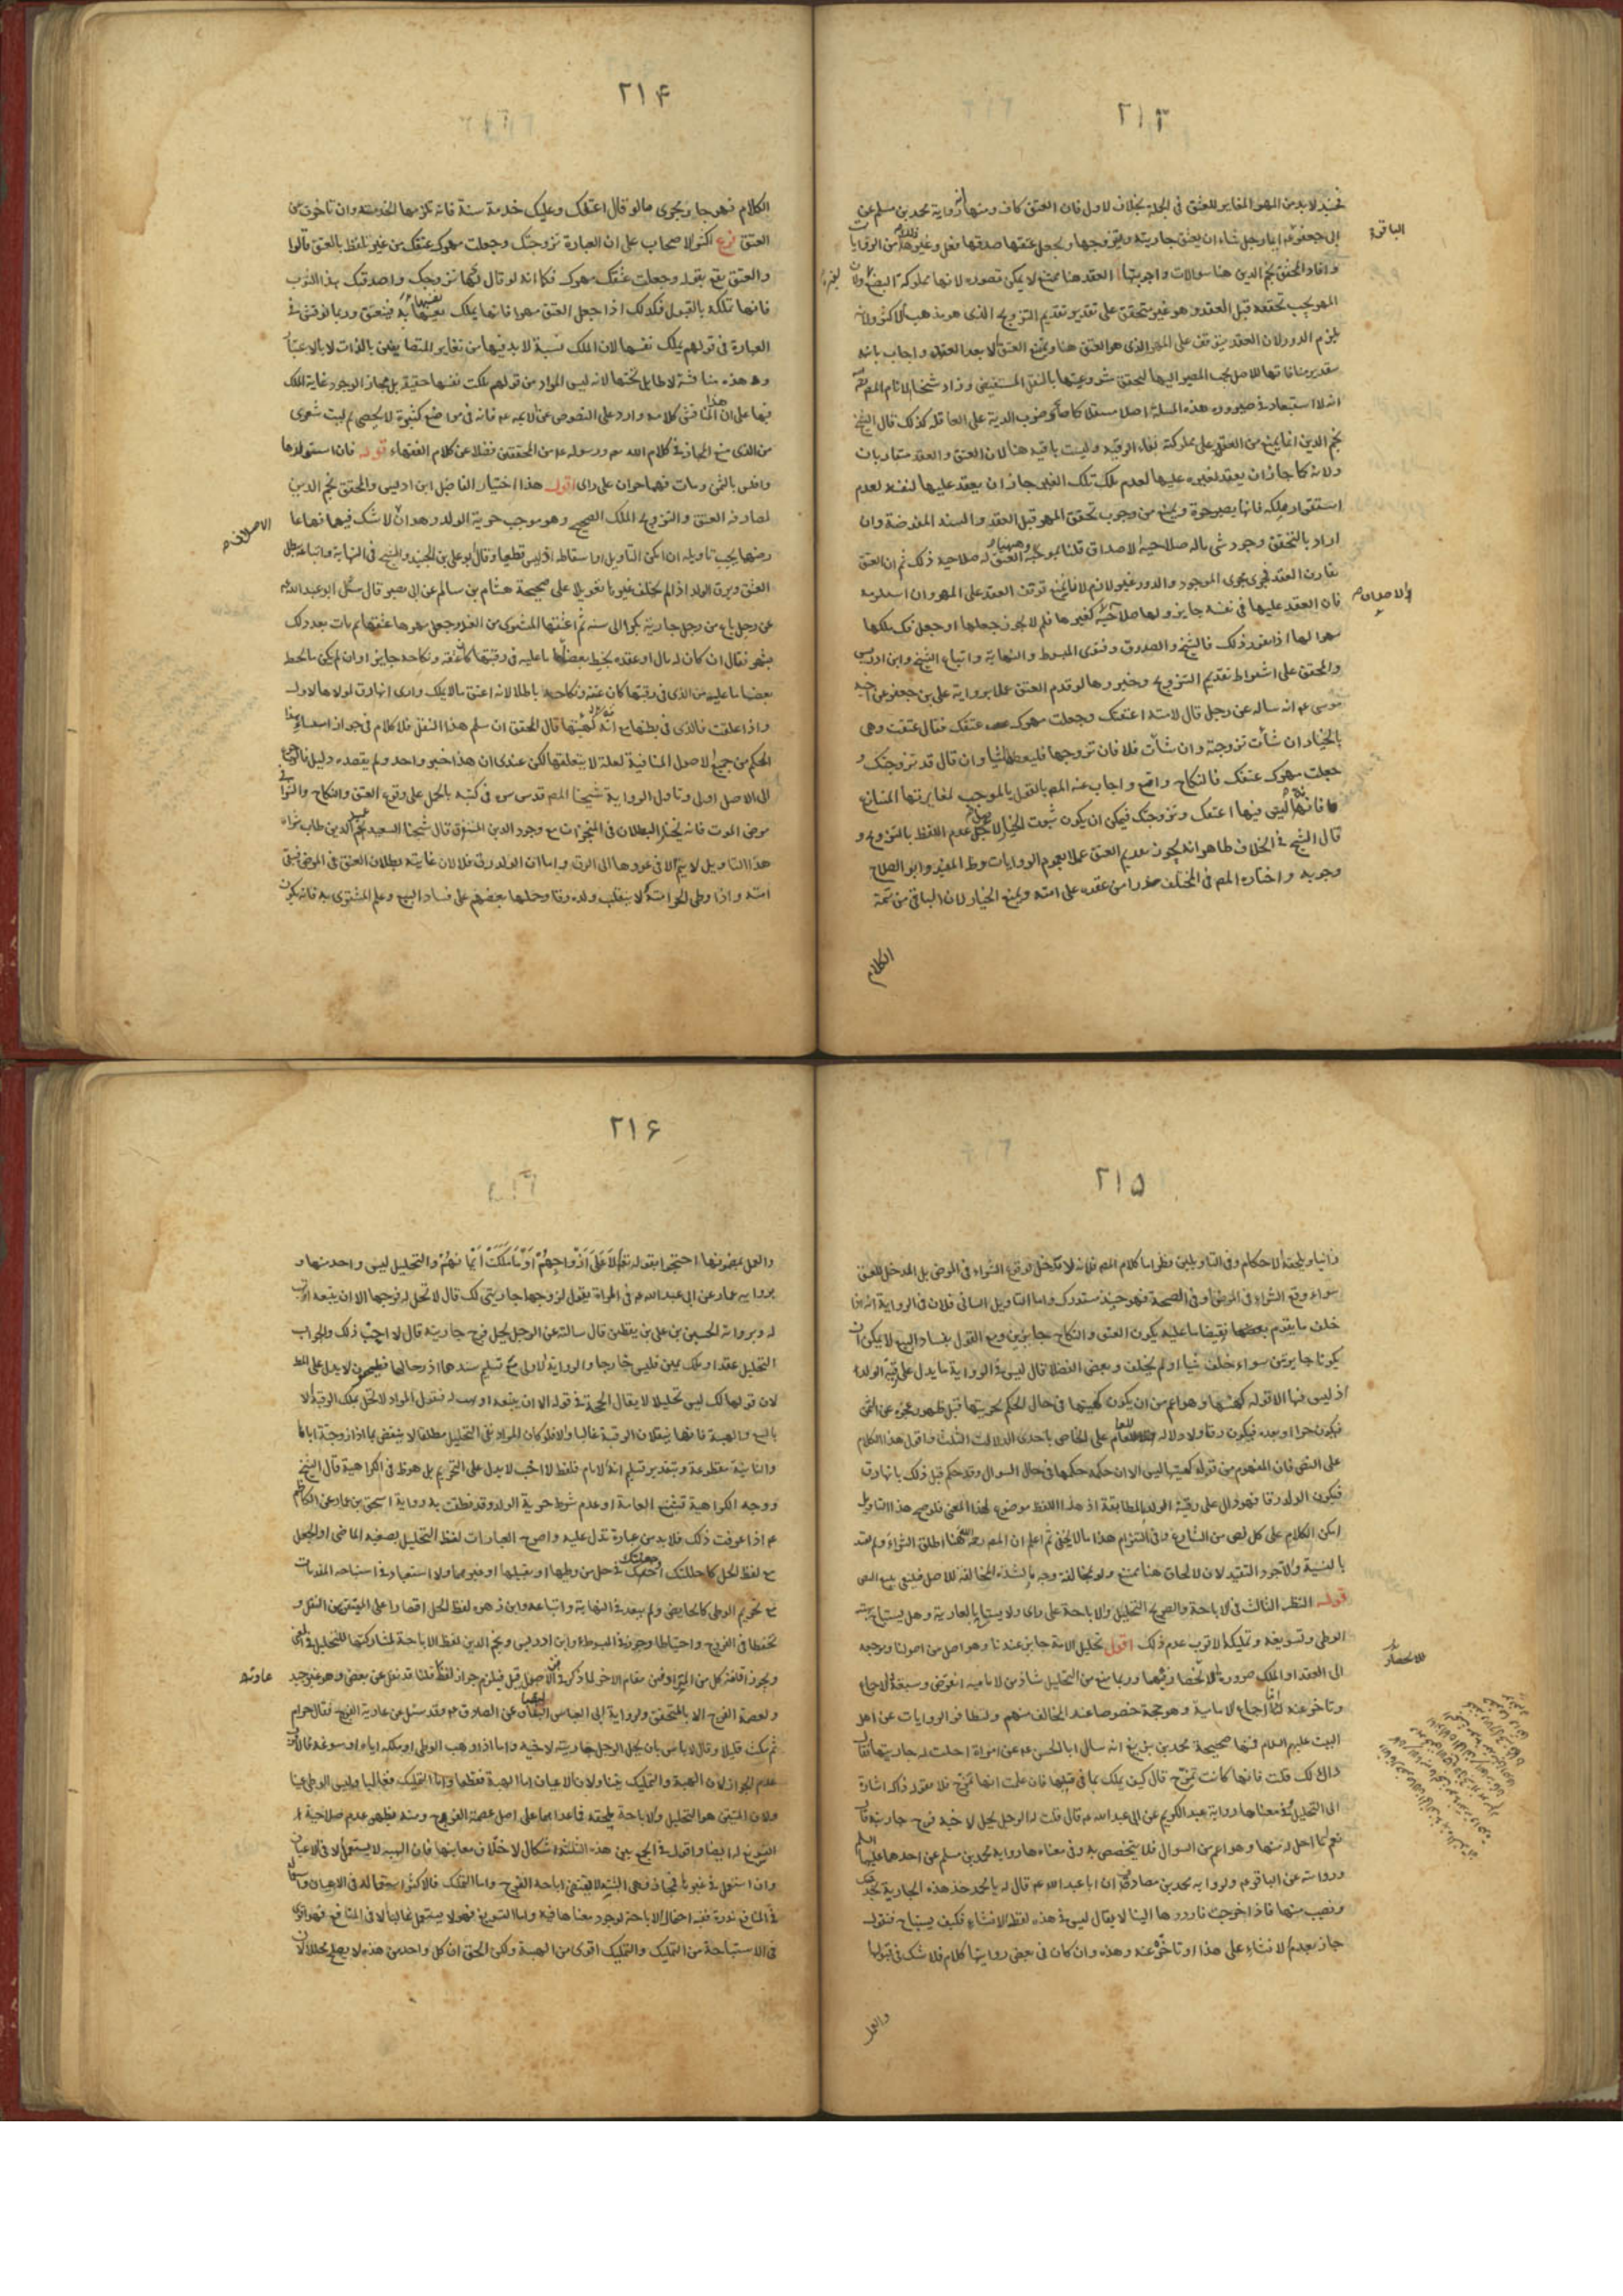 ٢١٣
فحينئذ لابد من المهر المغاير للعتق في الجملة بخلاف الاول فان العتق كاف ومنها رواية محمد بن مسلم عن
ابي جعفر ايما رجل شاء ان يعتق جاريته ويتزوجها ويجعل عتقها صدقها فعل وغير من الروايات
وافاد المحقق نجم الدين هنا سوالات واجوبتها العقد هنا ممتنع لا يمكن تصوره لانها مملوكة البضع ولان
المهر يجب تحققه قبل العقد وهو غير متحقق على تقدير تقديم التزويج الذي هو مذهب الاكثر ولانه
يلزم الدور لان العقد يتوقف على المهر الذي هو العتق هنا ويمتنع العتق الا بعد العقد واجاب بانه
بتقدير منافاتها للاصل يجب المصير اليها لتحقق مشروعيتها بالنقل المستفيض وزاد شيخنا الامام المص
انه لا استبعاد في صيرورة هذه المسئلة اصلا مستقلا كما صار ضرب الدية على العاقلة كذلك قال الشيخ
نجم الدين انما يمنع من العقد على مملوكته بقاء الرقية وليست باقية هنا لان العتق والعقد متقاربان
ولانه كما جاز ان يعقد لغيره عليها لعدم ملك تلك الغير جاز ان يعقد عليها لنفسه لعدم
استقرار ملكه فانها تصير حرة ويمنع من وجوب تحقق المهر قبل العقد والسند المفوضة وان
اراد بالتحقق وجود شئ باله صلاحية الاصداق قلنا بموجبه العتق له صلاحية ذلك ثم ان العتق
يقارن العقد فجرى مجرى الموجود والدور غير لازم لانا نمنع توقف العقد على المهر وان استلزمه
فان العقد عليها في نفسه جايز ولها صلاحية كغيرها فلم لا يجوز جعلها او جعل فك ملكها
مهرا لها اذا تقرر ذلك فالشيخ والصدوق وفتوى المبسوط والنهاية واتباع الشيخ وابن ادريس
والمحقق على اشتراط تقديم التزويج وخيروها لو قدم العتق عملا برواية علي بن جعفر عن اخيه
موسى عم انه ساله عن رجل قال لامته اعتقتك وجعلت مهرك عتقك فقال عتقت وهي
بالخيار ان شأت تزوجته وان شأت فلا فان تزوجها فليعطها شيئا وان قال قد تزوجتك و
جعلت مهرك عتقك فالنكاح واقع واجاب عنه المص بالقول بالموجب لمغايرتها المتنازع
فانه ليس فيها اعتقك وتزوجتك فيمكن ان يكون ثبوت الخيار لاجل عدم اللفظ بالتزويج و
قال الشيخ في الخلاف ظاهرا انه يجوز تقديم العتق عملا بعموم الروايات وظ المفيد وابو الصلاح
وجوبه واختاره المص في المختلف حذرا من عقده على امته ويمنع الخيار لان الباقي من تتمة
الكلام
الباقر
والاصداق
٢١۴
الكلام فهو جار مجرى ما لو قال اعتقتك وعليك خدمة سنة فانه تلزمها الخدمة وان تاخرت عن
العتق فرع اكثر الاصحاب على ان العبارة تزوجتك وجعلت مهرك عتقك من غير تلفظ بالعتق قالوا
والعتق يقع بقوله وجعلت عتقك مهرك فكما انه لو قال لها تزوجتك واصدقتك هذا الثوب
فانها تملكه بالقبول فكذلك اذا جعل العتق مهرا فانها تملك نفسها به فينعتق وربما توقش في
العبارة في قولهم يملك نفسها لان الملك نسبة لابد فيها من تغاير المتضايفين بالذات لا بالاعتبار
وهذه مناقشة لا طايل تحتها لانه ليس المراد من قولهم ملكت نفسها حقيقة بل مجازا لوجود غاية الملك
فيها على ان هذا المناقش كلامه وارد على النصوص عن الائمة عم فانه في مواضع كثيرة لا يحصى ثم ليت شعرى
من الذي منع المجاز في كلام الله سم ورسوله عم من المحققين فضلا عن كلام الفقهاء قوله فان استولدها
وافلس بالثمن ومات فهما حران على راى اقول هذا اختيار الفاضل ابن ادريس والمحقق نجم الدين
لمصادفة العتق والتزويج الملك الصحيح وهو موجب حرية الولد وهذان لا شك فيهما فما عا
رضها يجب تاويله ان امكن التاويل او اسقاطه اذ ليس قطعيا وقال ابو علي بن الجنيد والشيخ في النهاية واتباعه يبطل
العتق ويرق الولد اذا لم يخلف غيرها تعويلا على صحيحة هشام بن سالم عن ابي بصير قال سئل ابو عبد الله عم
عن رجل باع من رجل جارية بكرا الى سنة ثم اعتقها المشترى من الغد وجعل مهرها عتقها ثم مات بعد ذلك
بشهر فقال ان كان له مال او عقده يحيط بقضاء ما عليه في رقبتها كان عتقه ونكاحه جايزا وان لم يكن ما يحيط
بقضاء ما عليه من الذي في رقبتها كان عتقه ونكاحه باطلا لانه اعتق ما لا يملك وارى انها رق لمولاها الاول
واذا علقت فالذي في بطنها مع امه كهيئتها قال المحقق ان سلم هذا النقل فلا كلام في جواز استثناء هذا
الحكم من جميع الاصول المنافية لعلة لا يتعلقها لكن عندى ان هذا خبر واحد ولم يعضده دليل فالرجوع
الى الاصل اولى وتاول الرواية شيخنا المص قدس سره في كتبه بالحمل على وقوع العتق والنكاح والشراء في
مرض الموت فانه يختار البطلان في المنجزات مع وجود الدين المستغرق قال شيخنا السعيد عميد الدين طاب ثراه
هذا التاويل لا يتم الا في عودها الى الرق واما ان الولد رق فلا لان غايته بطلان العتق في المرض فتبقى
امته واذا وطى الحر امته لا ينقلب ولده رقا وحملها بعضهم على فساد البيع وعلم المشترى به فانه يكون
الاصلان
٢١۵
زانيا ويلحقه الاحكام وفي التاويلين نظر اما كلام المص فلانه لا مدخل لوقوع الشراء في المرض بل المدخل للعتق
سواء وقع الشراء في المرض او في الصحة فهو حينئذ مستدرك واما التاويل الثاني فلان في الرواية انه اذا
خلف ما يقوم بقضاء ما عليه يكون العتق والنكاح جايزين ومع القول بفساد البيع لا يمكن ان
يكونا جايزين سواء خلف شيئا او لم يخلف وبعض الفضلاء قال ليس في الرواية ما يدل على رقية الولد
اذ ليس فيها الا قوله كهيئتها وهو اعم من ان يكون كهيئتها في حال الحكم بحريتها قبل ظهور عجزه عن الثمن
فيكون حرا او بعده فيكون رقا ولا دلالة للعام على الخاص باحدى الدلالات الثلث واقول هذا الكلام
على النص فان المفهوم من قوله كهيئتها ليس الا ان حكمه حكمها في حال السوال وقد حكم قبل ذلك بانها رق
فيكون الولد رقا فهو دال على رقية الولد بالمطابقة اذ هذا اللفظ موضوع لهذا المعنى فلو صح هذا التاويل
امكن الكلام على كل نص من الشارع وفي التزام هذا ما لا يخفى ثم اعلم ان المص رحمه الله هنا اطلق الشراء ولم يقيد
بالنسية والاجود التقييد لان الالحاق هنا ممتنع ولو مخالفة وجه ما لشذوذه المخالفة للاصل فليتبع النص
قوله النظر الثالث في الاباحة والصريح التحليل والاباحة على راى ولا يستباح بالعارية وهل يستباح بهبة
الوطى وتسويغه وتمليكه الاقرب عدم ذلك اقول تحليل الامة جايز عندنا وهو اصل من اصولنا ومرجعه
الى العقد او الملك ضرورة الانحصار فيهما وربما منع من التحليل شاذ من الامامية انقرض وسبقه الاجماع
وتاخر عنه لنا اجماع الامامية وهو حجة خصوصا عند المخالف منهم وتظافر الروايات عن اهل
البيت عليهم السلام فمنها صحيحة محمد بن بزيغ انه سال ابا الحسن عم عن امراة احلت له جاريتها فقال
ذاك لك قلت فانها كانت تمزح قال كيف يملك بما في قلبها فان علمت انها تمزح فلا مقرر ذاك اشارة
الى التحليل وفي معناها رواية عبد الكريم عن ابي عبد الله عم قال قلت له الرجل يحل لاخيه فرج جاريته قال
نعم له ما احل له منها وهو اعم من السوال فلا يتخصص به وفي معناها رواية محمد بن مسلم عن احدهما عليهما السلم
وروايته عن الباقر عم ولرواية محمد بن مضارب ان ابا عبد الله عم قال له يا محمد خذ هذه الجارية تخدمك
وتصيب منها فاذا خرجت فارددها الينا لا يقال ليس في هذه لفظ الانشاء فكيف يستباح فنقول
جاز تقدم الانشاء على هذا او تاخر عنه وهذه وان كان في بعض رواتها كلام فلا شك في قبولها
والعمل
للانحصار
٢١۶
والعمل بمضمونها احتجوا بقوله تعالى الا على ازواجهم او ما ملكت ايمانهم والتحليل ليس واحد منها و
برواية عمار عن ابي عبد الله عم في المراة تقول لزوجها جاريتي لك قال لا تحل له فرجها الا ان تبيعه او تهب
له وبرواية الحسين بن علي بن يقطين قال سالته عن الرجل يحل فرج جاريته قال لا احب ذلك والجواب
التحليل عقد او ملك يمين فليس خارجا والرواية الاولى مع تسليم سندها اذ رجالها فطحيون لا يدل على المط
لان قولها لك ليس تحليلا لا يقال الحجة في قوله الا ان تبيعه او تهب له فنقول المراد لا تحل بملك الرقبة الا
بالبيع والهبة فانها ينقلان الرقبة غالبا والا فلو كان المراد نفى التحليل مطلقا لا ينقض بما اذا زوجته اياها
والثانية مقطوعة وبتقدير تسليم انه الامام فلفظ لا احب لا يدل على التحريم بل هو ظ في الكراهية قال الشيخ
ووجه الكراهية تشنيع العامة او عدم شرط حرية الولد وقد نطقت به رواية اسحق بن عمار عن الكاظم
عم اذا عرفت ذلك فلابد من عبارة تدل عليه واصرح العبارات لفظ التحليل بصيغة الماضى او الجعل
مع لفظ الحل كاحللتك او جعلتك في حل من وطيها او تقبيلها او غيرهما ولا استبعاد في استباحة المقدمات
مع تحريم الوطى كالحايض ولم يتعد في النهاية واتباعه وابن زهره لفظ الحل اقتصارا على المتيقن من النقل و
تحفظا في الفرج واحتياطا وجوز في المبسوط وابن ادريس ونجم الدين لفظ الاباحة لمشاركتها للتحليل في المعنى
ويجوز اقامة كل من المترادفين مقام الاخر لما ذكر في الاصول قيل فيلزم جواز لفظ قلنا قد نقل عن بعض وهو غير جيد
ولعصمة الفرج الا بالمتحقق ولرواية ابي العباس البقباق عن الصادق عم وقد سئل عن عارية الفرج فقال حرام
ثم مكث قليلا وقال لا باس بان يحل الرجل جاريته لاخيه واما اذا وهب الوطى او ملكه اياه او سوغه فالاقرب
عدم الجواز لان الهبة والتمليك يتناولان الاعيان اما الهبة فقطعا واما التمليك فغالبا وليس الوطى عينا
ولان المتيقن هو التحليل والاباحة ملحقة فاعداهما على اصل عصمة الفروج ومنه يظهر عدم صلاحية
التسويغ له ايضا واقول في الجمع بين هذه الثلثة اشكال لاختلاف معانيها فان الهبة لا يستعمل الا في الاعيان
وان استعمل في غيرها فمجاز فهى لا يقتضى اباحة الفرج واما التمليك فالاكثر استعماله في الاعيان واستعماله
في المنافع ندرة ففيه احتمال الاباحة لوجود معناها فيه واما التسويغ فهو لا يستعمل غالبا الا في المنافع فهو اقوى
في الاستباحة من التمليك والتمليك اقوى من الهبة ولكن الحق ان كل واحد من هذه لا يصلح محللا لان
عاريته